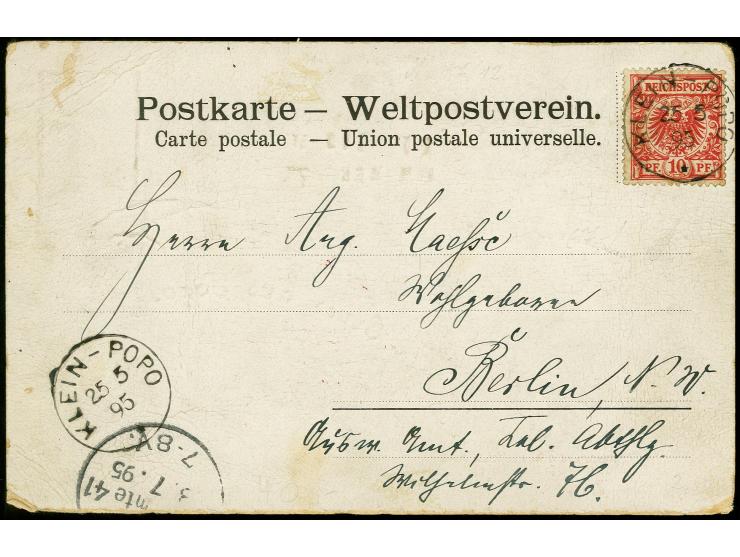 Postkarte — Weltpostverein.
Carte postale — Union postale universelle.
REICHSPOST
PF 10 PF
KLEIN-POPO
25 5
95
Herrn Aug.
Wohlgeboren
Berlin, N.W.
Ausw. Amt, Kol. Abthlg.
Wilhelmstr. 76.
KLEIN-POPO
25 5
95
7-8V.
3.7.95
mte 41